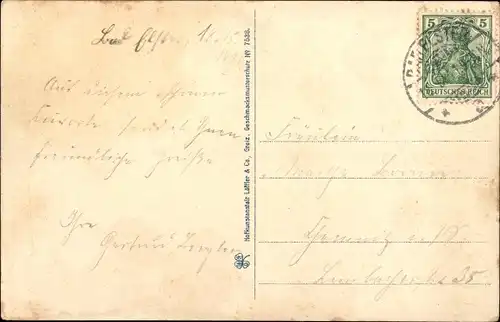 Bad Elster, 
Aus diesem schönen
Kurorte sendet Ihnen
freundliche Grüße
Ihre
Gertrud
Hofkunstanstalt Löffler & Co., Greiz. Geschmacksmusterschutz No 7538.
5 5
DEUTSCHES REICH
BAD ELSTER
Fräulein
Chemnitz i/S.
Limbacherstr 35